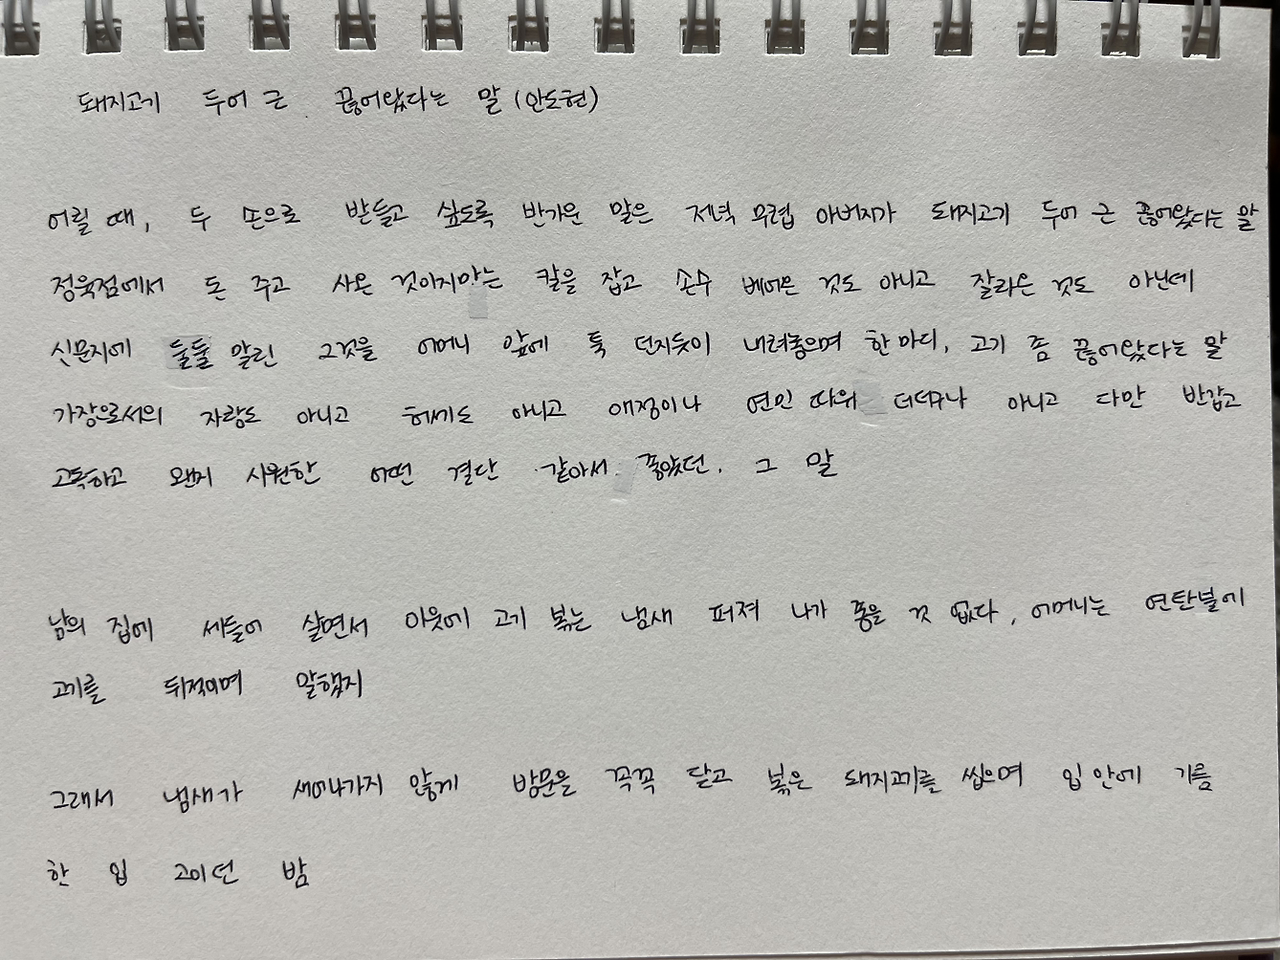 돼지고기 두어 근 끊어왔다는 말 (안도현)
어릴 때, 두 손으로 받들고 싶도록 반가운 말은 저녁 무렵 아버지가 돼지고기 두어 근 끊어왔다는 말
정육점에서 돈 주고 사온 것이지마는 칼을 잡고 손수 베어온 것도 아니고 잘라온 것도 아닌데
신문지에 둘둘 말린 그것을 어머니 앞에 툭 던지듯이 내려놓으며 한 마디, 고기 좀 끊어왔다는 말
가장으로서의 자랑도 아니고 허세도 아니고 애정이나 연인 따위 더더구나 아니고 다만 반갑고
고독하고 왠지 시원한 어떤 결단 같아서 좋았던, 그 말
남의 집에 세들어 살면서 이웃에 고기 볶는 냄새 퍼져 나가 좋을 것 없다, 어머니는 연탄불에
고기를 뒤적이며 말했지
그래서 냄새가 새어나가지 않게 방문을 꼭꼭 닫고 볶은 돼지고기를 씹으며 입 안에 기름
한 입 고이던 밤